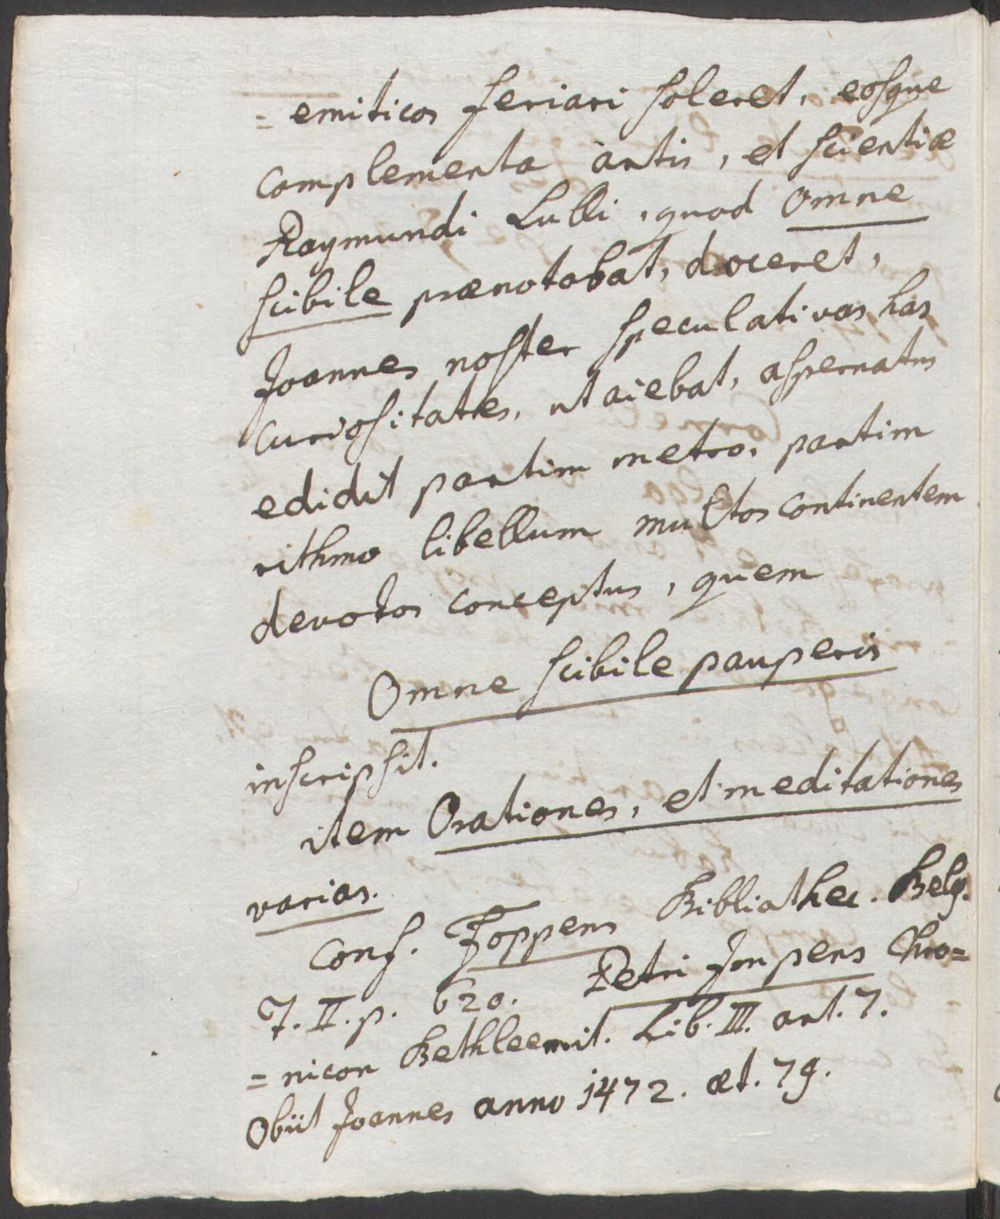 = emiticos feriari soleret, eosque
complementa artis, et scientiæ
Raymundi Lulli, quod Omne
scibile prænotabat, doceret,
Joannes noster speculativas has
curiositates, ut aiebat, aspernatus
edidit partim metro, partim
rithmo libellum multos continentem
devotos conceptus, quem
Omne scibile pauperis
inscripsit.
item Orationes, et meditationes
varias.
conf. Foppens Bibliothec. Belg.
T. II. p. 620. Petri Impens Chro=
= nicon Bethleemit. Lib. III. art. 7.
Obiit Joannes anno 1472. æt. 79.